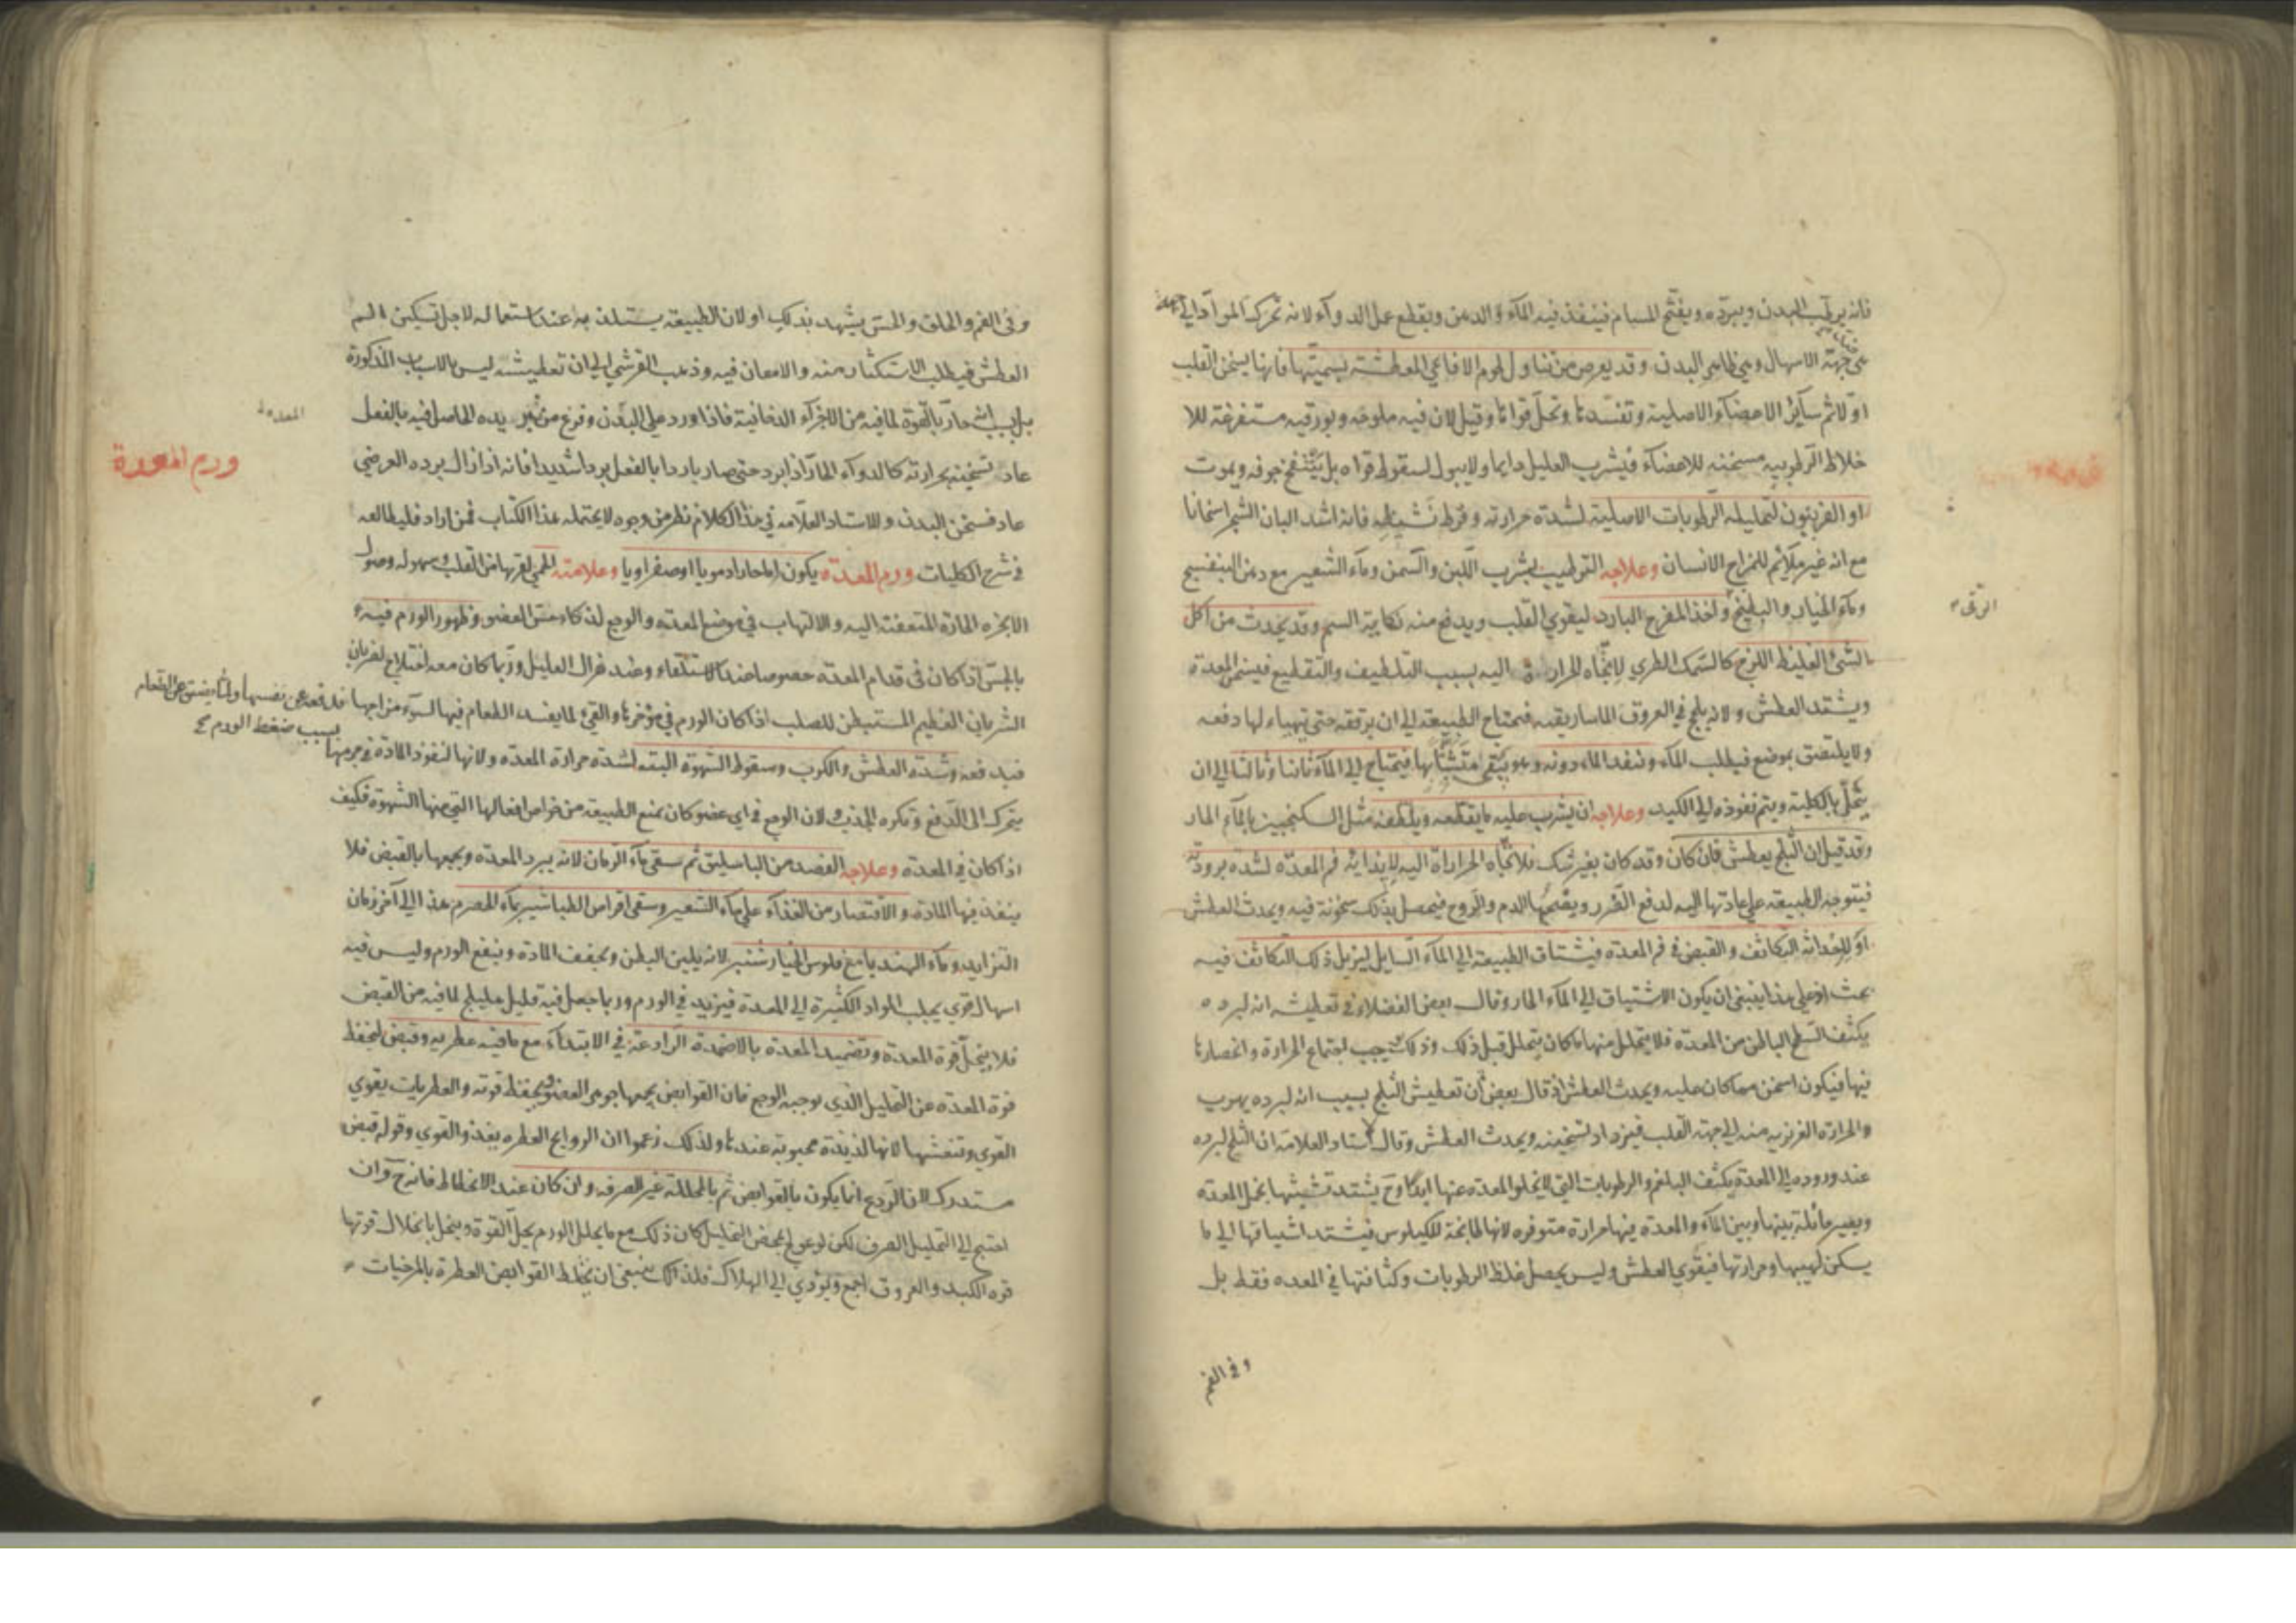 فانه يرطب البدن ويبرده ويفتح المسام فينفذ فيه الماء والدهن ويقطع عمل الدواء لانه تحرك المواد الى
جهة الاسهال وهي ظاهر البدن وقد يعرض من تناول لحوم الافاعي المعطشة بسميتها فانها يسخن القلب
اولا ثم سائر الاعضاء الاصلية وتفسدها وتحل قواها وقيل لان فيه ملوحه وبورقيه مستفرغة للا
خلاط الرطوبيه مسخنه للاعضاء فيشرب العليل دايما ولا يبول لسقوط قواه بل ينتفخ جوفه ويموت
او الفربيون لتحليله الرطوبات الاصلية لشدة حرارته وفرط فانه اشد البان الشجر اسخانا
مع انه غير ملائم للمزاج الانسان وعلاجه الترطيب بشرب اللبن والسمن وماء الشعير مع دهن البنفسج
وماء الخيار والبطيخ واخذ المفرح البارد ليقوي القلب ويدفع منه نكاية السم وقد يحدث من اكل
الشئ الغليظ اللزج كالسمك الطري لاتجاه الحرارة اليه بسبب التلطيف والتقطيع فيسخن المعدة
ويشتد العطش ولانه يلج في العروق الماساريقيه فيحتاج الطبيعة الى ان يرققه حتى يتهياء لها دفعه
ولا يلتصق بموضع فيطلب الماء وينفد الماء دونه وهو يبقى متشبثا بها فيحتاج الى الماء ثانيا وثالثا الى ان
يتحلل بالكلية ويتم نفوذه الى الكبد وعلاجه ان يشرب عليه ما يقطعه ويلطفه مثل السكنجبين بالماء الحار
وقد قيل ان الثلج يعطش فان كان وقد كان بغير شك فلاتجاه الحرارة اليه لايذائه فم المعدة لشدة برودته
فيتوجه الطبيعة على عادتها اليه لدفع الضرر الدم والروح فيحصل بذلك سخونة فيه ويحدث العطش
او لاحداثه التكاثف والقبض في فم المعدة فيشتاق الطبيعة الى الماء السايل ليزيل ذلك التكاثف فيه
بحث اذ على هذا ينبغي ان يكون الاشتياق الى الماء الحار وقال بعض الفضلاء في تعطيشه انه لبرده
يكثف السطح الباطن من المعدة فلا يتحلل منها ما كان يتحلل قبل ذلك وذلك يوجب اجتماع الحرارة وانحصارها
فيها فيكون اسخن مما كان عليه ويحدث العطش اذ قال بعض ان تعطيش الثلج بسبب انه لبرده يهرب
والحرارة الغريزيه منه الى جهة القلب فيزداد تسخينه ويحدث العطش وقال استاد العلامة ان الثلج لبرده
عند وروده الى المعدة يكثف البلغم والرطوبات التي لا يخلو المعدة عنها ابدا وح يشتد تشبثها بخمل المعدة
ويصير حائلة بينها وبين الماء والمعدة فيها حرارة متوفره لانها طابخة للكيلوس فيشتد اشتياقها الى ما
يسكن لهيبها وحرارتها فيقوي العطش وليس يحصل غلظ الرطوبات وكثافتها في المعده فقط بل
وفي الفم
الرقى
وفي الفم والحلق والحس يشهد بذلك او لان الطبيعة يستلذ به عند استعماله لاجل تسكين الم
العطش فيطلب الاستكثار منه والامعان فيه وذهب القرشي الى ان تعطيشه ليس بالاسباب المذكورة
بل بسبب انه حار بالقوة لما فيه من الاجزاء الدخانية فاذا ورد على البدن وفرغ من تبريده الحاصل فيه بالفعل
عاد تسخينه بحرارته كالدواء الحار اذا برد حتى صار باردا بالفعل بردا شديدا فانه اذا زال برده العرضي
عاد فسخن البدن وللاستاد العلامه في هذا الكلام نظر من وجوه لا يحتمله هذا الكتاب فمن اراد فليطالعه
في شرح الكليات ورم المعدة يكون اما حارا دمويا او صفراويا وعلامته الحمى لقربها من القلب وسهولة وصول
الابخره الحارة المتعفنة اليه والالتهاب في موضع المعدة والوجع لذكاء حس العضو وظهور الورم فيه
بالجس اذا كان في قدام المعدة خصوصا عند الاستلقاء وعند هزال العليل وربما كان معه اختلاج لضربان
الشريان العظيم المستبطن للصلب اذا كان الورم في مؤخرها والقئ لما يفسد الطعام فيها لسوء مزاجها فلدفعه عن نفسها ولما يضيق عن الطعام
بسبب ضغط الورم
فيدفعه وشدة العطش والكرب وسقوط الشهوة البته لشدة حرارة المعده ولانها لنفوذ المادة في جرمها
يتحرك الى الدفع وتكره الجذب لان الوجع في اي عضو كان يمنع الطبيعة من خواص افعالها التي منها الشهوة فكيف
اذا كان في المعدة وعلاجه الفصد من الباسليق ثم سقي ماء الرمان لانه يبرد المعده ويجمعها بالقبض فلا
ينفذ فيها المادة والاقتصار من الغذاء على ماء الشعير وسقي اقراص الطباشير بماء الحصرم هذا الى آخر زمان
التزايد وماء الهندبا مع فلوس الخيارشنبر لانه يلين البطن ويجفف المادة وينفع الورم وليس فيه
اسهال قوي يجلب المواد الكثيرة الى المعدة فيزيد في الورم وربما جعل فيه قليل هليلج لما فيه من القبض
فلا ينحل قوة المعدة وتضميد المعدة بالاضمدة الرادعة في الابتداء مع ما فيه عطريه وقبض ليحفظ
قوة المعدة عن التحليل الذي يوجبه الوجع فان القوابض يجمعها جوهر العضو ويحفظ قوته والعطريات يقوي
القوي وتنعشها لانها لذيذة محبوبة عندها ولذلك زعموا ان الروايح العطره يغذو القوي وقوله قبض
مستدرك لان الردع انما يكون بالقوابض ثم بالمحللة غير الصرفه وان كان عند الانحطاط فانه ح وان
احتيج الى التحليل الصرف لكن لو عولج بمحض التحليل كان ذلك مع ما يحلل الورم يحل القوة وينحل بانحلال قوتها
قوة الكبد والعروق اجمع ويؤدي الى الهلاك فلذلك ينبغي ان يخلط القوابض العطرة بالمرخيات
ورم المعدة